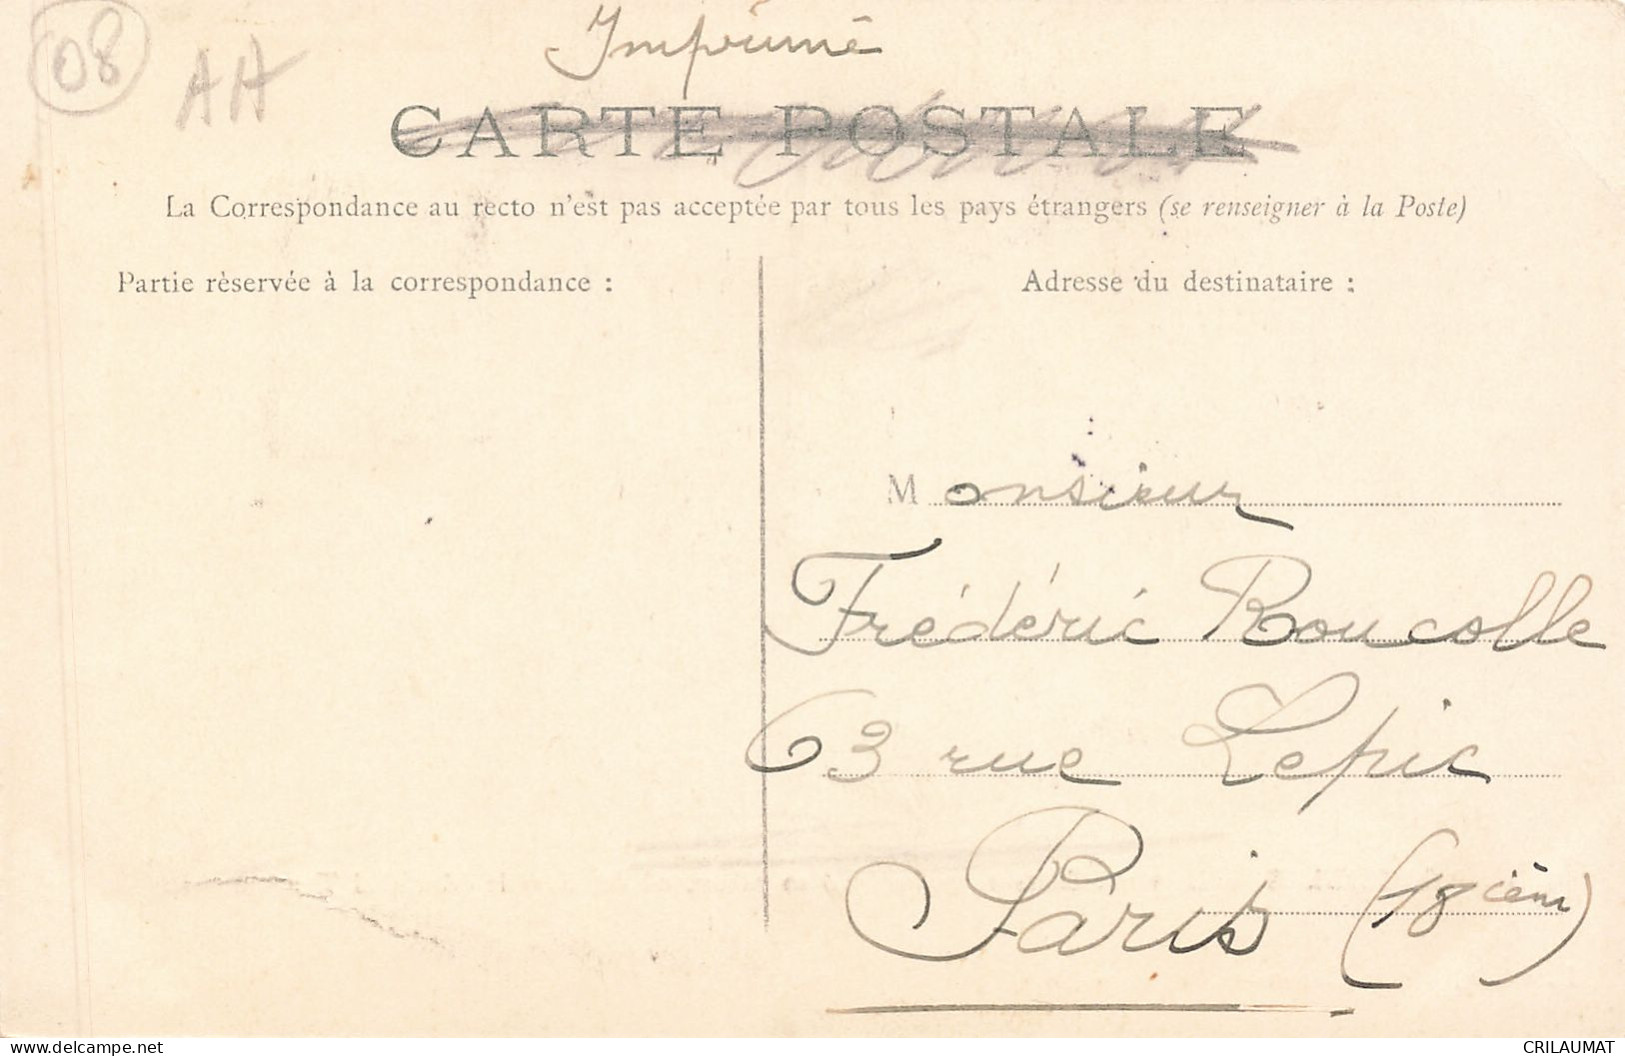 08
AH
Imprimé
CARTE POSTALE
La Correspondance au recto n'est pas acceptée par tous les pays étrangers (se renseigner à la Poste)
Partie réservée à la correspondance :
Adresse du destinataire :
Monsieur
Frédéric Roucolle
63 rue Lepic
Paris (18cièm)
www.delcampe.net
CRILAUMAT